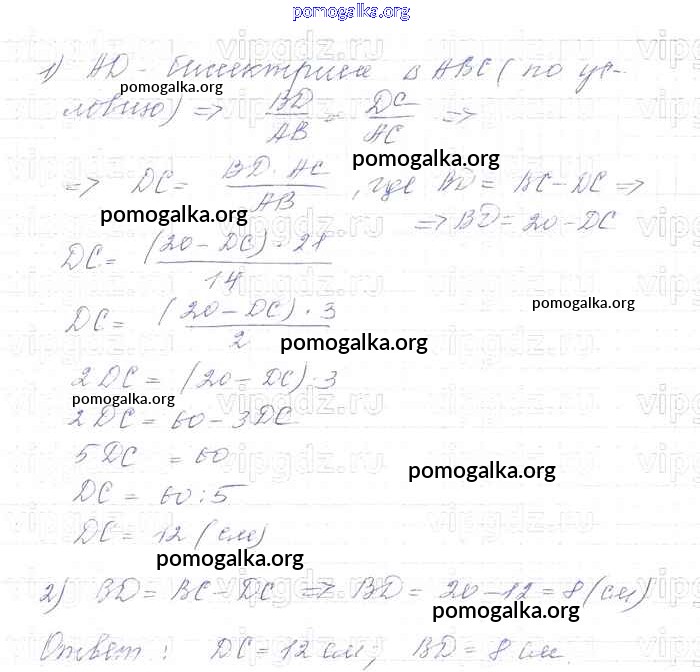 pomogalka.org
1) AD - биссектриса в ABC (по ус-
pomogalka.org
ловию) => BD/AB = DC/AC =>
pomogalka.org
=> DC = BD · AC / AB, где BD = BC - DC =>
pomogalka.org
=> BD = 20 - DC
DC = (20 - DC) · 21 / 14
pomogalka.org
DC = (20 - DC) · 3 / 2
pomogalka.org
2DC = (20 - DC) · 3
pomogalka.org
2DC = 60 - 3DC
5DC = 60
pomogalka.org
DC = 60 : 5
DC = 12 (см)
pomogalka.org
2) BD = BC - DC => BD = 20 - 12 = 8 (см)
pomogalka.org
Ответ: DC = 12 см; BD = 8 см